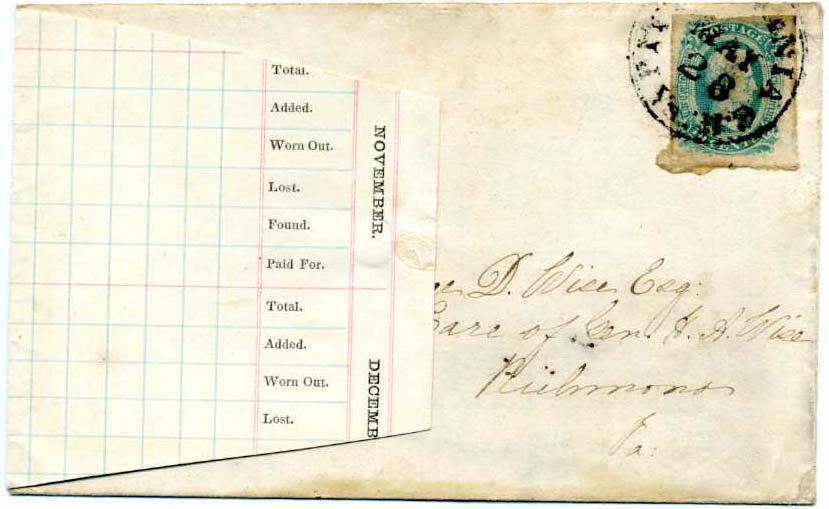 Total.
Added.
Worn Out.
Lost.
Found.
Paid For.
NOVEMBER.
Total.
Added.
Worn Out.
Lost.
DECEMB
POSTAGE
D. Wise Esq.
Care of Gen. H. A. Wise
Richmond
Va: